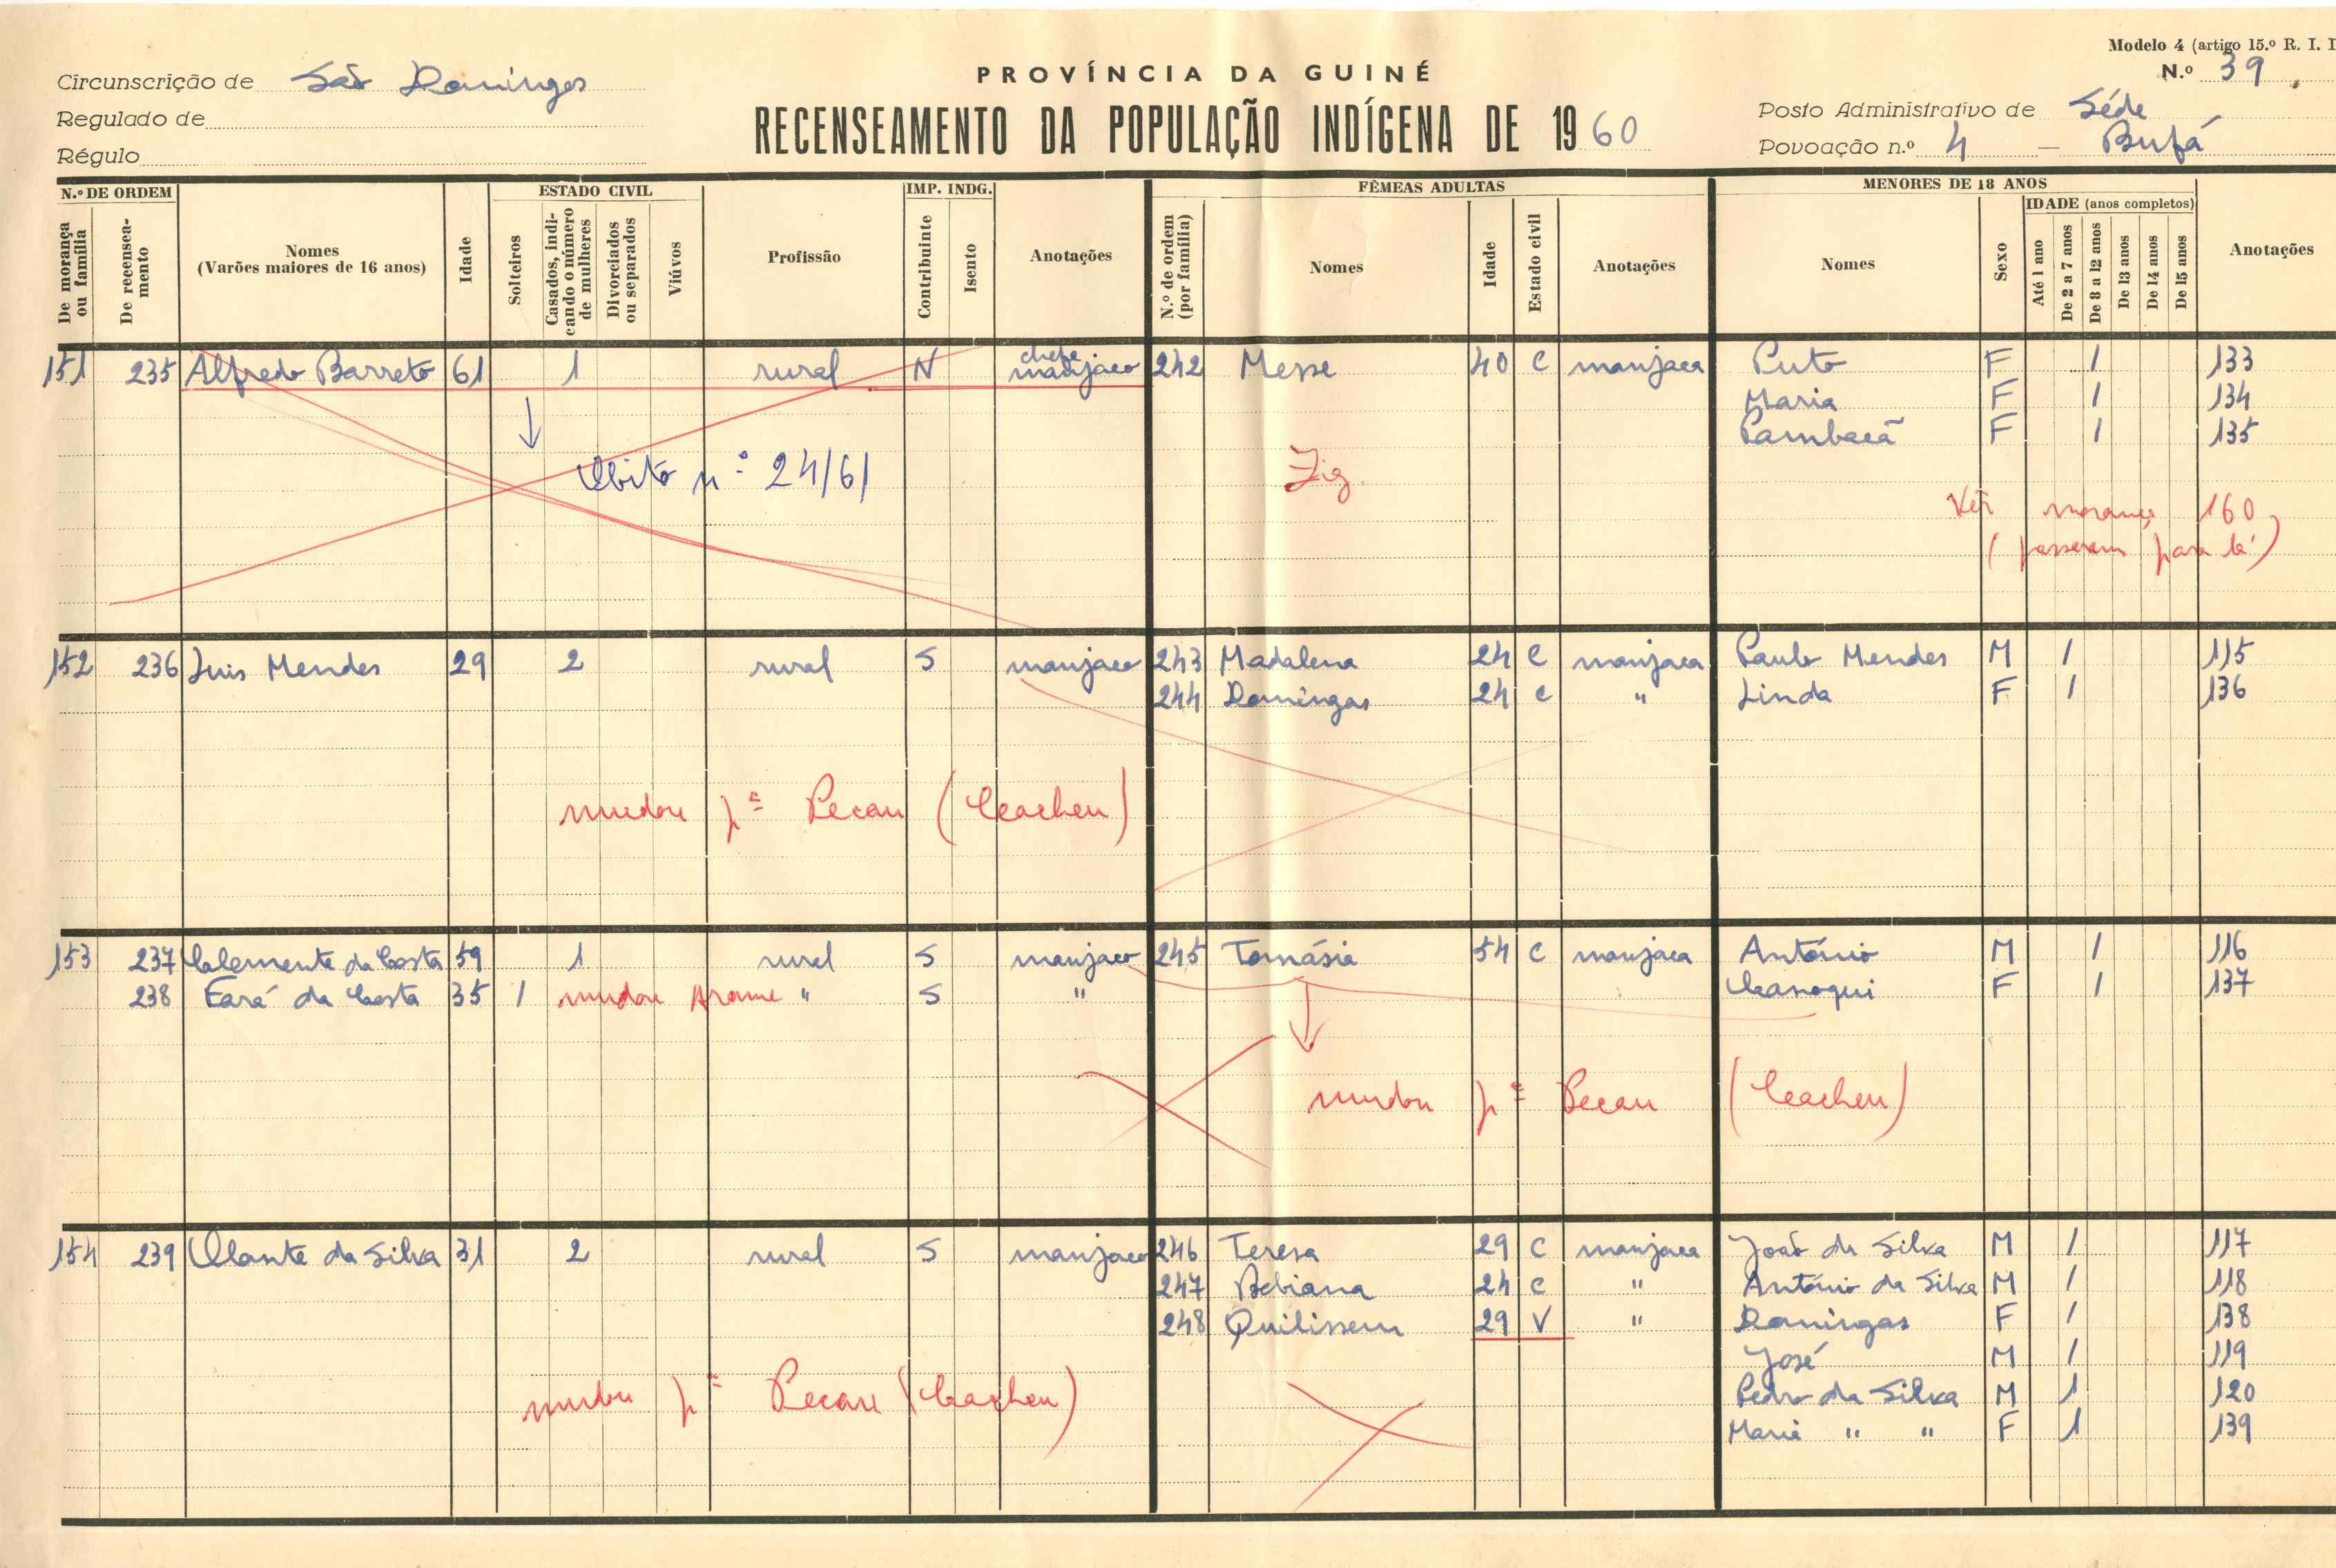 Modelo 4 (artigo 15.º R. I. I
N.º 39
PROVÍNCIA DA GUINÉ
RECENSEAMENTO DA POPULAÇÃO INDÍGENA DE 1960
Circunscrição de São Domingos
Regulado de
Régulo
Posto Administrativo de Séde
Povoação n.º 4 — Bufá
N.º DE ORDEM
De morança ou família
De recenseamento
Nomes
(Varões maiores de 16 anos)
Idade
ESTADO CIVIL
Solteiros
Casados, indicando o número de mulheres
Divorciados ou separados
Viúvos
Profissão
IMP. INDG.
Contribuinte
Isento
Anotações
FÊMEAS ADULTAS
N.º de ordem (por família)
Nomes
Idade
Estado civil
Anotações
MENORES DE 18 ANOS
Nomes
Sexo
IDADE (anos completos)
Até 1 ano
De 2 a 7 anos
De 8 a 12 anos
De 13 anos
De 14 anos
De 15 anos
Anotações
151 235 Alfredo Barreto 61 1 rural N chefe manjaco 242 Messe 40 C manjaca Puto F 1 133
Maria F 1 134
F 1 135
Obito nº 24/61
Zig.
Ver morança 160
(passaram para lá)
152 236 Luis Mendes 29 2 rural S manjaco 243 Madalena 24 C manjaca Paulo Mendes M 1 115
244 Domingas 24 C " Linda F 1 136
mudou pª Pecau (Cacheu)
153 237 Clemente da Costa 59 1 rural S manjaco 245 Tomásia 54 C manjaca António M 1 116
238 Fará da Costa 35 1 mudou Arame " S " Canoqui F 1 137
mudou pª Pecau (Cacheu)
154 239 Olante da Silva 31 2 rural S manjaco 246 Teresa 29 C manjaca João da Silva M 1 117
247 Bebiana 24 C " António da Silva M 1 118
248 Quilissem 29 V " Domingas F 1 138
José M 1 119
mudou pª Pecau (Cacheu)
Pedro da Silva M 1 120
Maria " " F 1 139